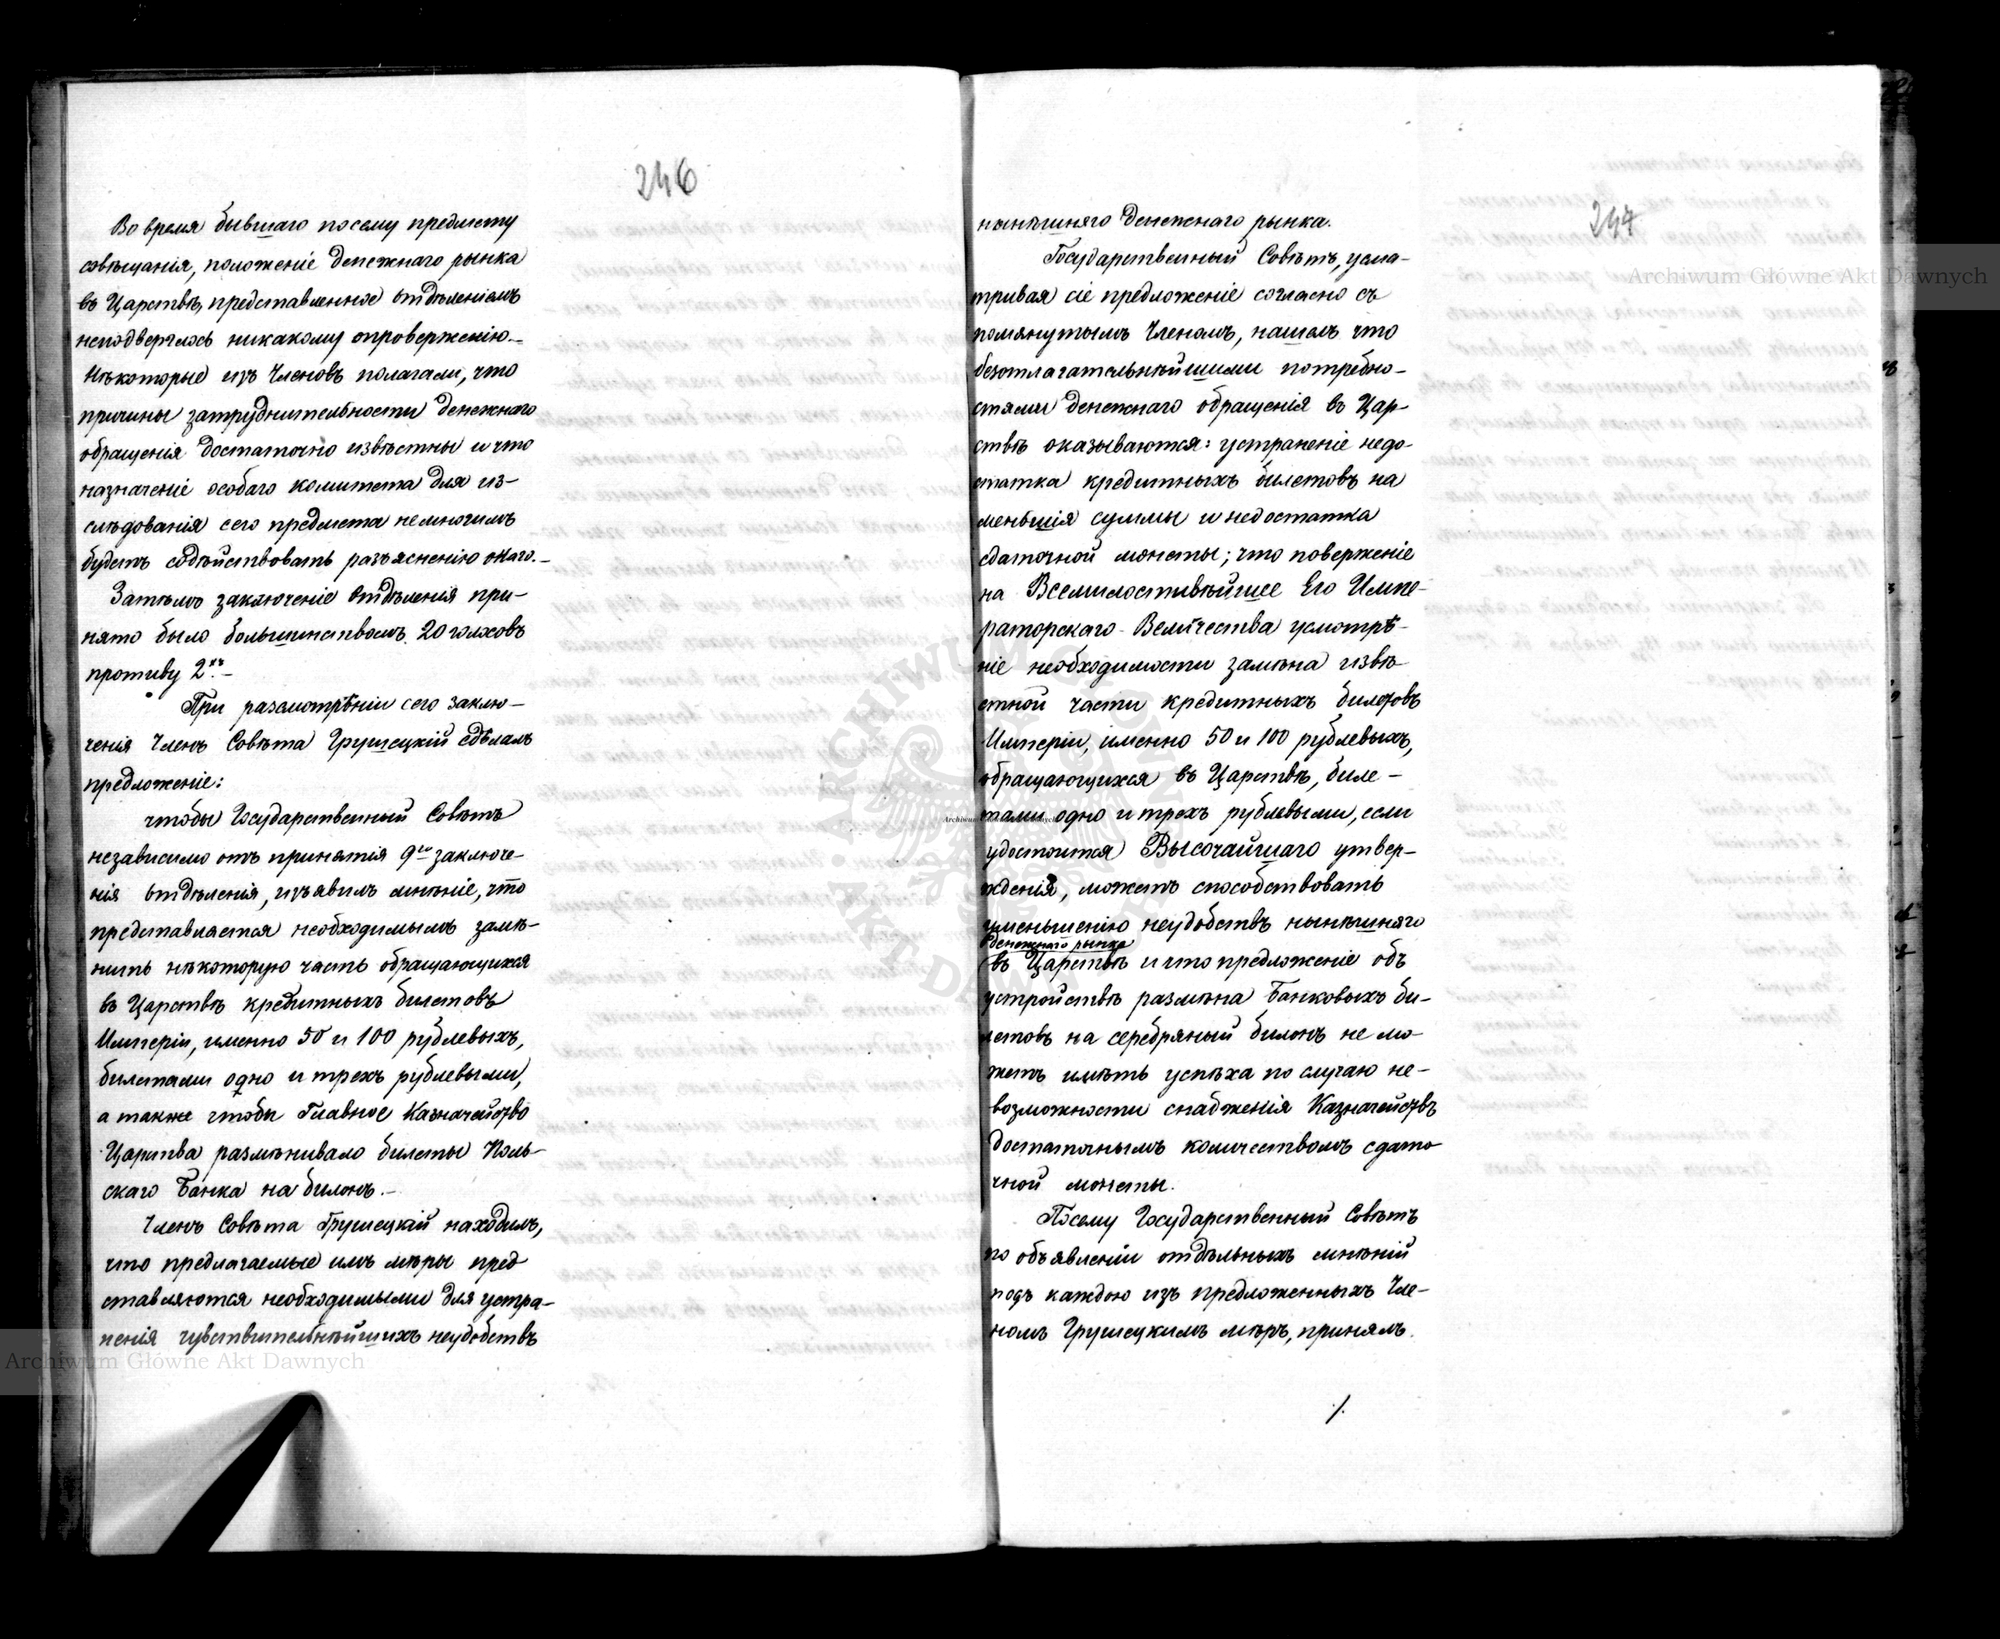 246
Во время бывшаго посему предмету
совѣщанія, положеніе денежнаго рынка
въ Царствѣ, представленное отдѣленіемъ
неподверглось никакому опроверженію.–
Нѣкоторые изъ Членовъ полагали, что
причины затруднительности денежнаго
обращенія достаточно извѣстны и что
назначеніе особаго комитета для из–
слѣдованія сего предмета немногимъ
будетъ содѣйствовать разъясненію онаго.–
Затѣмъ заключеніе отдѣленія при–
нято было большинствомъ 20 голосовъ
противу 2.хъ–
При разсмотрѣніи сего заклю–
ченія Членъ Совѣта Грушецкій сдѣлалъ
предложеніе:
чтобы Государственный Совѣтъ
независимо отъ принятія 9го заключе–
нія отдѣленія, изъявилъ мнѣніе, что
представляется необходимымъ замѣ–
нить нѣкоторую часть обращающихся
въ Царствѣ кредитныхъ билетовъ
Имперіи, именно 50 и 100 рублевыхъ,
билетами одно и трехъ рублевыми,
а также чтобы Главное Казначейство
Царства размѣнивало билеты Поль–
скаго Банка на билонъ.–
Членъ Совѣта Грушецкій находилъ,
что предлагаемые имъ мѣры пред
ставляются необходимыми для устра–
ненія чувствительнѣйшихъ неудобствъ
247
нынѣшняго денежнаго рынка.
Государственный Совѣтъ, усма–
тривая сіе предложеніе согласно съ
помянутымъ Членомъ, нашелъ что
безотлагательнѣйшими потребно–
стями денежнаго обращенія въ Цар–
ствѣ оказываются: устраненіе недо–
статка кредитныхъ билетовъ на
меньшія суммы и недостатка
сдаточной монеты; что поверженіе
на Всемилостивѣйшее Его Импе–
раторскаго Величества усмотрѣ–
ніе необходимости замѣна извѣ–
стной части кредитныхъ билетовъ
Имперіи, именно 50 и 100 рублевыхъ,
обращающихся въ Царствѣ, биле–
тами одно и трехъ рублевыми, если
удостоится Высочайшаго утвер–
жденія, можетъ способствовать
уменьшенію неудобствъ нынѣшняго
денежнаго рынка
въ Царствѣ и что предложеніе объ
устройствѣ размѣна Банковыхъ би–
летовъ на серебряный билонъ не мо–
жетъ имѣть успѣха по случаю не–
возможности снабженія Казначействъ
достаточнымъ количествомъ сдато
чной монеты.
Посему Государственный Совѣтъ
по объявленіи отдѣльныхъ мнѣній
подъ каждою изъ предложенныхъ Чле–
номъ Грушецкимъ мѣръ, принялъ.
./.
Archiwum Główne Akt Dawnych
Archiwum Główne Akt Dawnych
ARCHIWUM GŁÓWNE AKT DAWNYCH